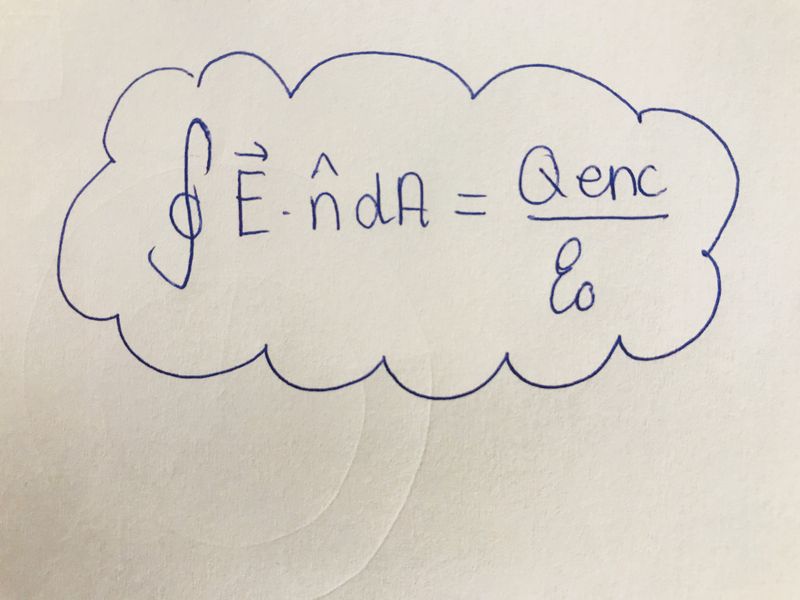 ∮ E⃗ · n̂ dA = Qenc / ε₀